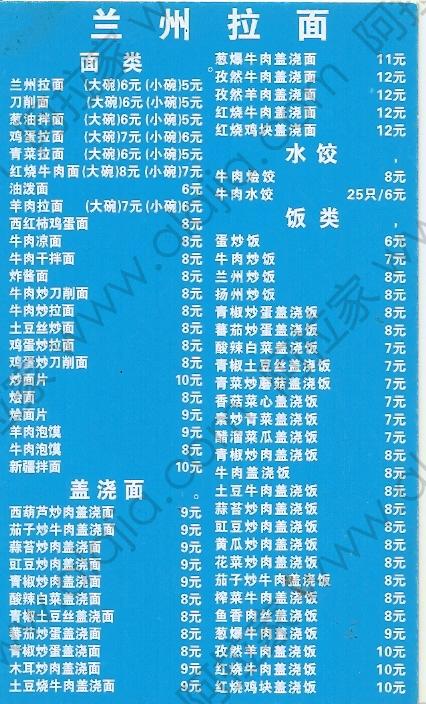 兰州拉面
面类
兰州拉面 (大碗)6元 (小碗)5元
刀削面 (大碗)6元 (小碗)5元
葱油拌面 (大碗)6元 (小碗)5元
鸡蛋拉面 (大碗)7元 (小碗)6元
青菜拉面 (大碗)6元 (小碗)5元
红烧牛肉面 (大碗)8元 (小碗)7元
油泼面 6元
羊肉拉面 (大碗)7元 (小碗)6元
西红柿鸡蛋面 8元
牛肉凉面 8元
牛肉干拌面 8元
炸酱面 8元
牛肉炒刀削面 8元
牛肉炒拉面 8元
土豆丝炒面 8元
鸡蛋炒拉面 8元
鸡蛋炒刀削面 8元
炒面片 10元
烩面 8元
烩面片 9元
羊肉泡馍 9元
牛肉泡馍 8元
新疆拌面 10元
盖浇面
西葫芦炒肉盖浇面 9元
茄子炒牛肉盖浇面 9元
蒜苔炒肉盖浇面 9元
豇豆炒肉盖浇面 9元
青椒炒肉盖浇面 9元
酸辣白菜盖浇面 8元
青椒土豆丝盖浇面 8元
蕃茄炒蛋盖浇面 8元
青椒炒蛋盖浇面 8元
木耳炒肉盖浇面 9元
土豆烧牛肉盖浇面 9元
葱爆牛肉盖浇面 11元
孜然牛肉盖浇面 12元
孜然羊肉盖浇面 12元
红烧牛肉盖浇面 12元
红烧鸡块盖浇面 12元
水饺
牛肉烩饺 8元
牛肉水饺 25只/6元
饭类
蛋炒饭 6元
牛肉炒饭 7元
兰州炒饭 8元
扬州炒饭 8元
青椒炒蛋盖浇饭 8元
蕃茄炒蛋盖浇饭 8元
酸辣白菜盖浇饭 7元
青椒土豆丝盖浇饭 7元
青菜炒蘑菇盖浇饭 7元
香菇菜心盖浇饭 7元
素炒青菜盖浇饭 7元
醋溜菜瓜盖浇饭 7元
青椒炒肉盖浇饭 8元
牛肉盖浇饭 8元
土豆牛肉盖浇饭 8元
蒜苔炒肉盖浇饭 8元
豇豆炒肉盖浇饭 8元
黄瓜炒肉盖浇饭 8元
花菜炒肉盖浇饭 8元
茄子炒牛肉盖浇饭 8元
榨菜牛肉盖浇饭 8元
鱼香肉丝盖浇饭 8元
葱爆牛肉盖浇饭 9元
孜然羊肉盖浇饭 10元
红烧牛肉盖浇饭 10元
红烧鸡块盖浇饭 10元